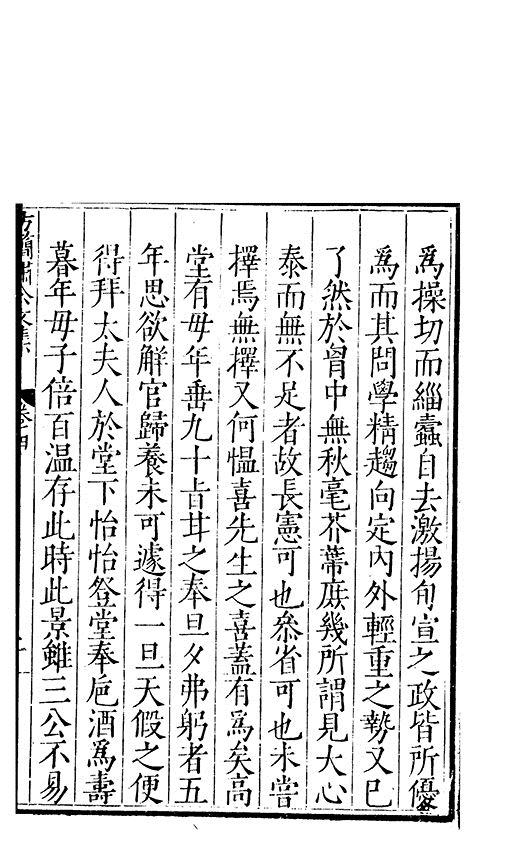 爲操切而緇蠹自去激揚旬宣之政皆所優
爲而其問學精趨向定內外輕重之勢又已
了然於胷中無秋毫芥蔕庶幾所謂見大心
泰而無不足者故長憲可也叅省可也未嘗
擇焉無擇又何愠喜先生之喜蓋有爲矣高
堂有毋年垂九十旨甘之奉旦夕弗躬者五
年思欲觧官歸養未可遽得一旦天假之便
得拜太夫人於堂下怡怡登堂奉巵酒爲壽
暮年毋子倍百溫存此時此景雖三公不易
方簡肅公文集
卷四